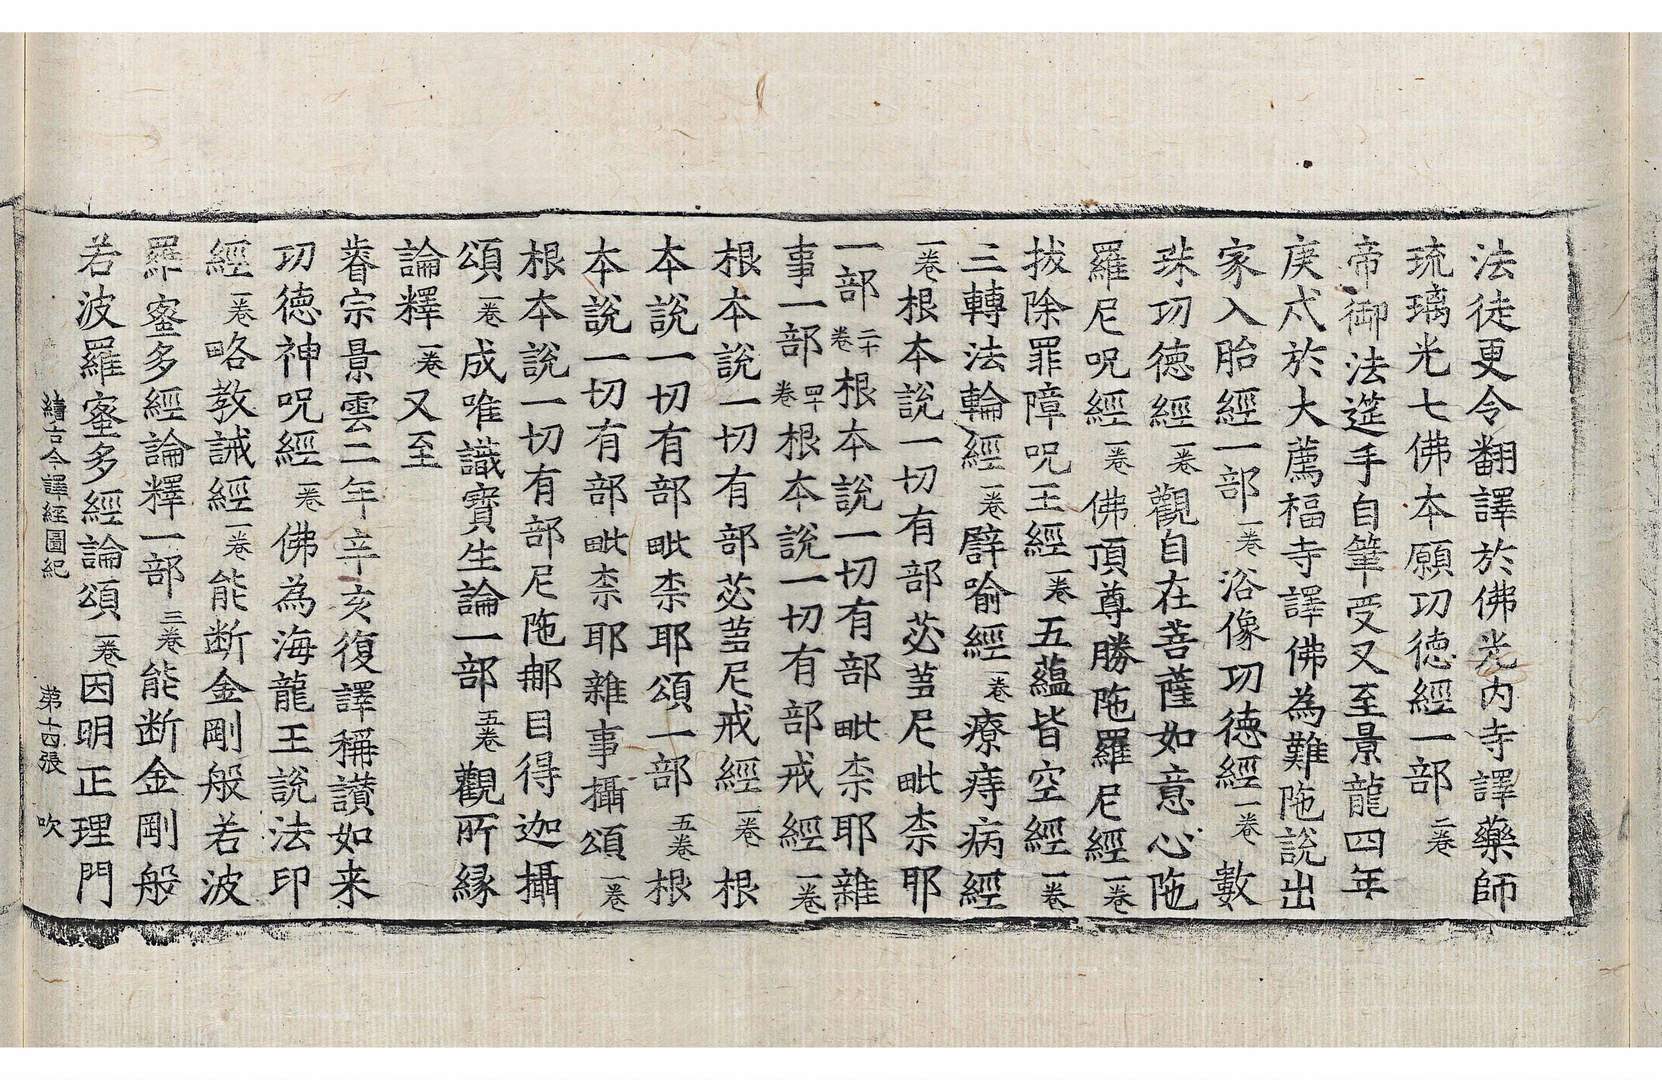 法徒更令翻譯於佛光内寺譯藥師
琉璃光七佛本願㓛徳經一部二卷
帝御法筵手自筆受又至景龍四年
庚戌於大薦福寺譯佛為難陁說出
家入胎經一部一卷浴像㓛徳經一卷數
珠㓛徳經一卷觀自在菩薩如意心陁
羅尼呪經一卷佛頂尊勝陁羅尼經一卷
拔除罪障呪王經一卷五蘊皆空經一卷
三轉法輪經一卷譬喻經一卷療痔病經
一卷根本說一切有部苾蒭尼毗柰耶
一部二十卷根本說一切有部毗柰耶雜
事一部四十卷根本說一切有部戒經一卷
根本說一切有部苾蒭尼戒經一卷根
本說一切有部毗柰耶頌一部五卷根
本說一切有部毗柰耶雜事攝頌一卷
根本說一切有部尼陁𨙻目得迦攝
頌一卷成唯識寶生論一部五卷觀所縁
論釋一卷又至
睿宗景雲二年辛亥復譯稱讃如来
㓛徳神呪經一卷佛為海龍王說法印
經一卷略教誡經一卷能断金剛般若波
羅蜜多經論釋一部三卷能断金剛般
若波羅蜜多經論頌一卷因明正理門
續古今譯經圖紀 第十四張 吹